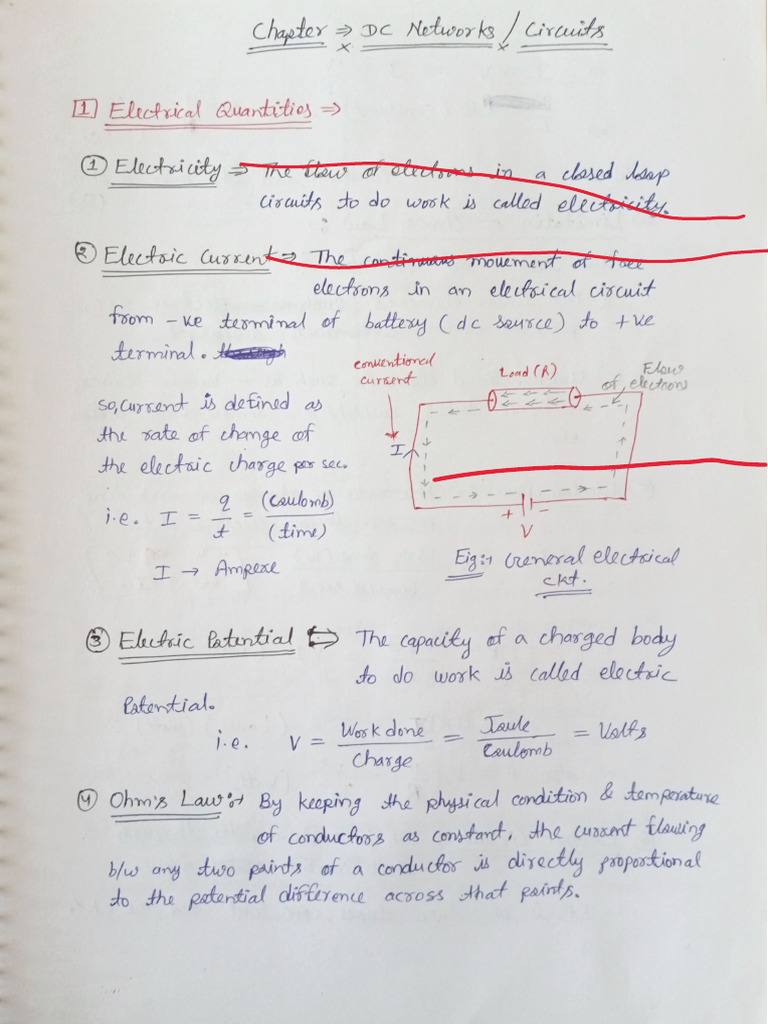 Chapter ⇒ DC Networks / Circuits
1 Electrical Quantities ⇒
① Electricity ⇒ The flow of electrons in a closed loop
circuits to do work is called electricity.
② Electric Current ⇒ The continuous movement of free
electrons in an electrical circuit
from -ve terminal of battery (dc source) to +ve
terminal.
conventional
current
Load (R)
Flow
of electrons
so, current is defined as
the rate of change of
the electric charge per sec.
I
i.e. I = q/t = (Coulomb)/(time)
+ -
V
I → Ampere
Fig:- General electrical
ckt.
③ Electric Potential ⇒ The capacity of a charged body
to do work is called electric
Potential.
i.e. V = Work done/Charge = Joule/Coulomb = Volts
④ Ohm's Law:→ By keeping the physical condition & temperature
of conductors as constant, the current flowing
b/w any two points of a conductor is directly proportional
to the potential difference across that points.